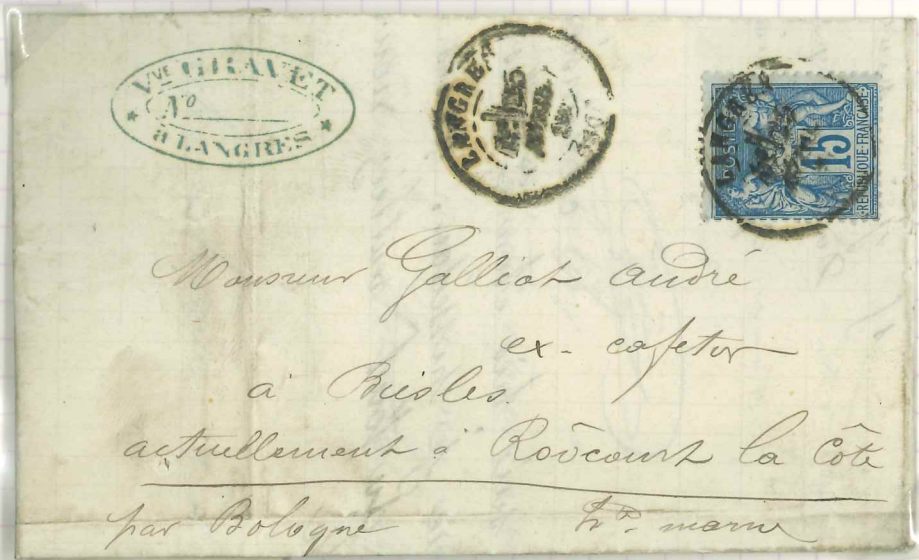 Vve GRAVET
No
à LANGRES
LANGRES
LANGRES
POSTES
15
REPUBLIQUE FRANCAISE
Monsieur Galliot André
ex-cafetier
à Biesles
actuellement à Roôcourt la Côte
par Bologne Hte marne